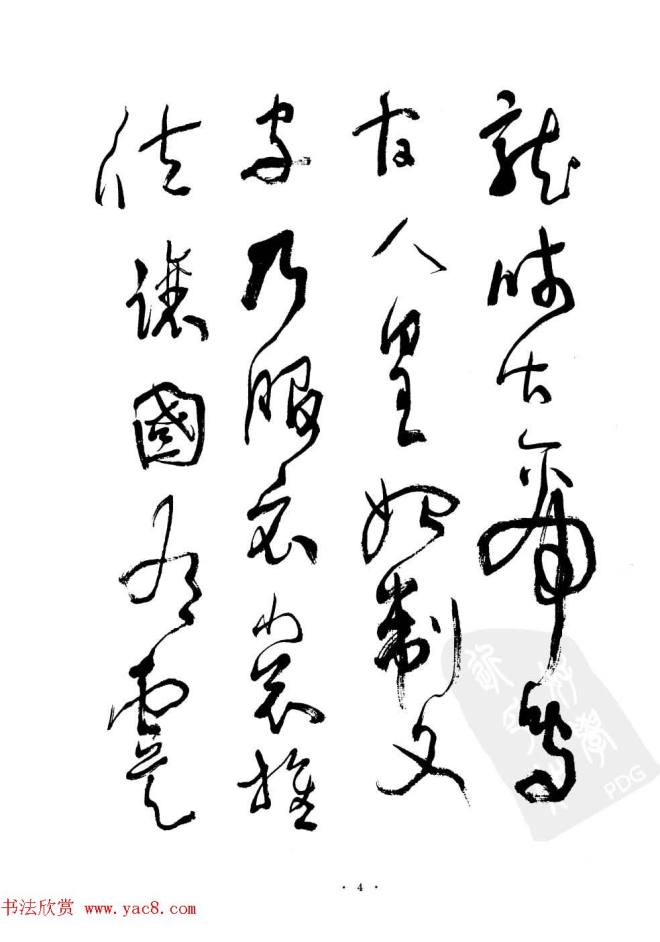 龍師火帝鳥
官人皇始制文
字乃服衣裳推
位讓國有虞
· 4 ·
书法欣赏 www.yac8.com
PDG